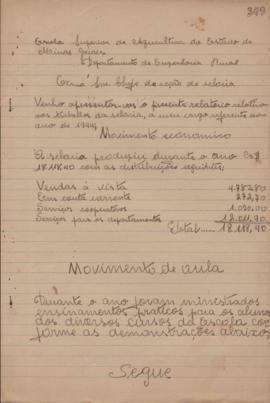 349
Escola Superior de Agricultura do Estado de
Minas Gerais
Departamento de Engenharia Rural
Chefe da seção de selaria
Venho apresentar-vos o presente relatório relativo
aos trabalhos da selaria, a meu cargo referente ao
ano de 1944.
Movimento economico
A selaria produziu durante o ano Cr$
18.118,40 com as distribuições seguintes:
Vendas á vista 4.782,80
Em conta corrente 272,70
Serviços cooperativos
Serviços para os departamentos
Total..... 18.118,40
Movimento de aula
Durante o ano foram ministrados
ensinamentos praticos para os alunos
dos diversos cursos da Escola con-
forme as demonstrações abaixo:
Segue